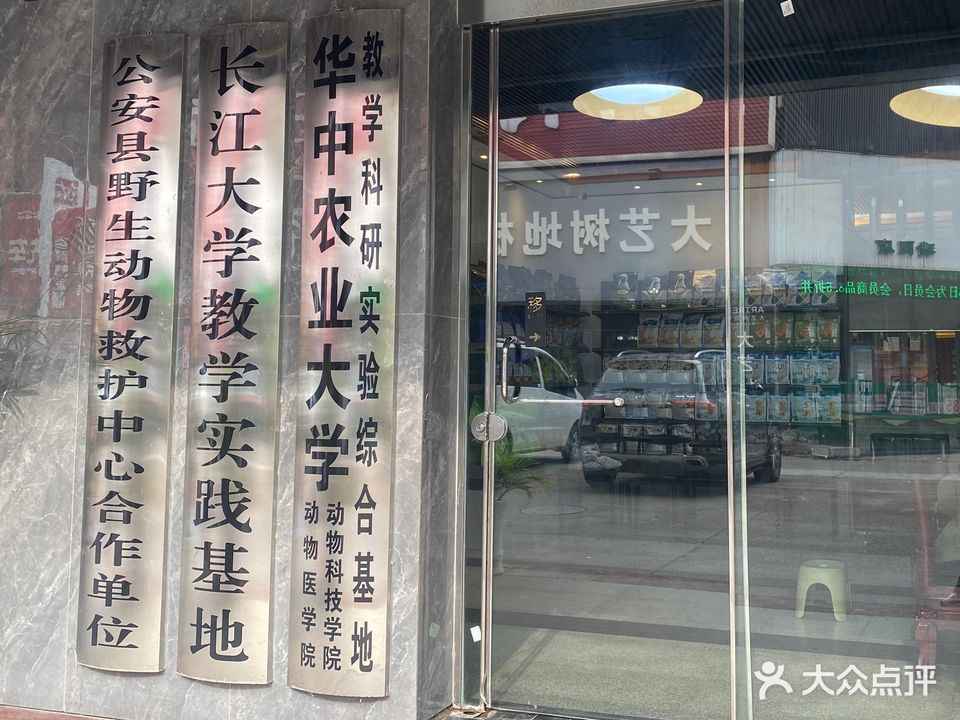 公安县野生动物救护中心合作单位
长江大学教学实践基地
华中农业大学
动物科技学院
动物医学院
教学科研实验综合基地
大艺树地板
移
日为会员日，会员商品8.5折
大众点评